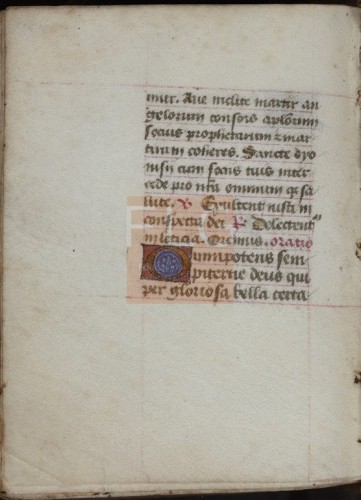 mur. Aue inclite martir an
gelorum consors aplorum
socius prophetarum ⁊ mar
tirum coheres. Sancte dyo
nisii cum sociis tuis inter
cede pro nra omnium qs sa
lute. ꝟ Exultent iusti in
conspectu dei ꝶ Delectent
in leticia. Oremus. oratio
Omnipotens sem
piterne deus qui
per gloriosa bella certa